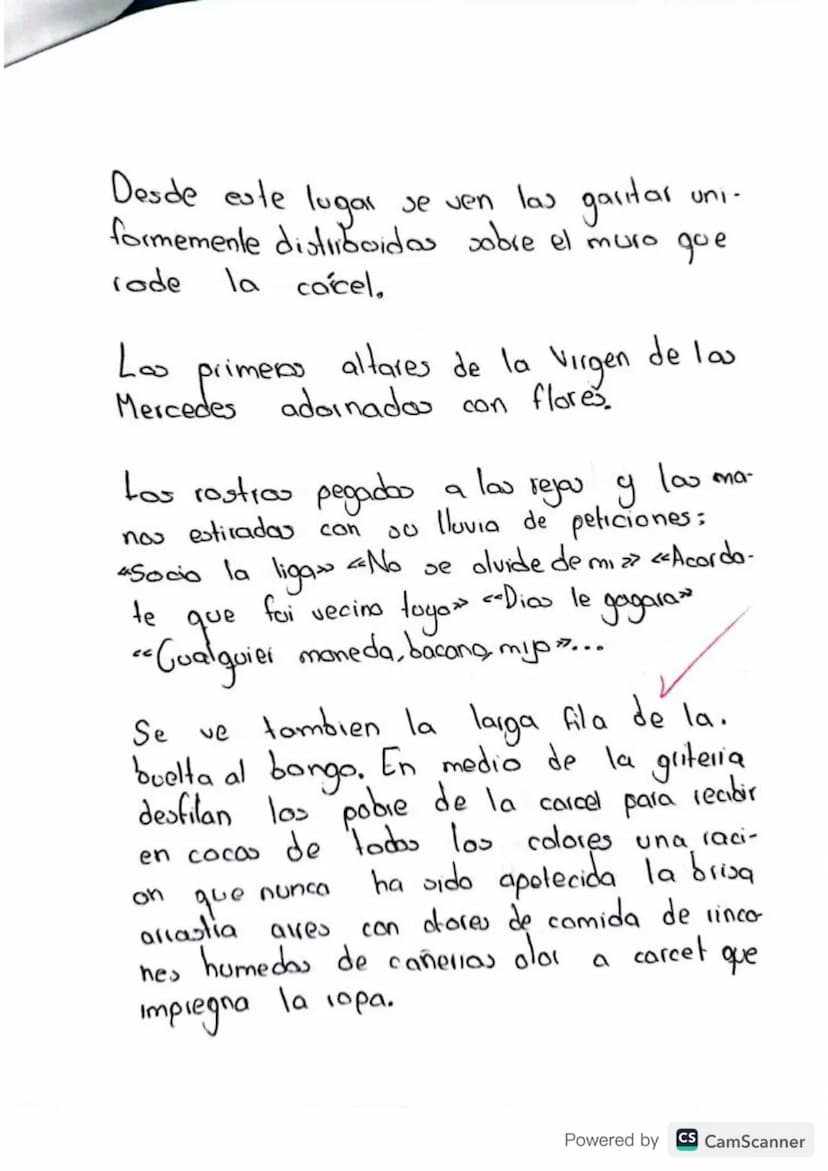 Desde este lugar se ven las garitas uni-
formemente distriboidas sobre el muro que
rode la cárcel.
Los primeros altares de la Virgen de las
Mercedes adornados con flores.
Los rostros pegados a las rejas y las ma-
nos estiradas con su lluvia de peticiones:
«Socio la liga» «No se olvide de mi» «Acorda-
te que foi vecino tuyo» «Dios le gagara»
«Cualquier moneda, bacano, mijo»...
Se ve tambien la larga fila de la.
buelta al bongo. En medio de la griteria
desfilan los pobre de la carcel para recibir
en cocas de todos los colores una raci-
on que nunca ha sido apetecida la brisa
arrastra aires con olores de comida de rinco
nes humedos de cañerias olor a carcel que
impregna la ropa.
Powered by CS CamScanner